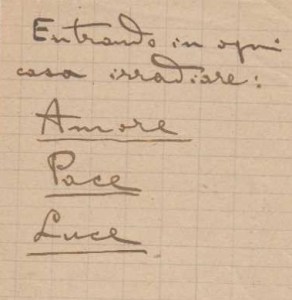 Entrando in ogni
casa irradiare:
Amore
Pace
Luce